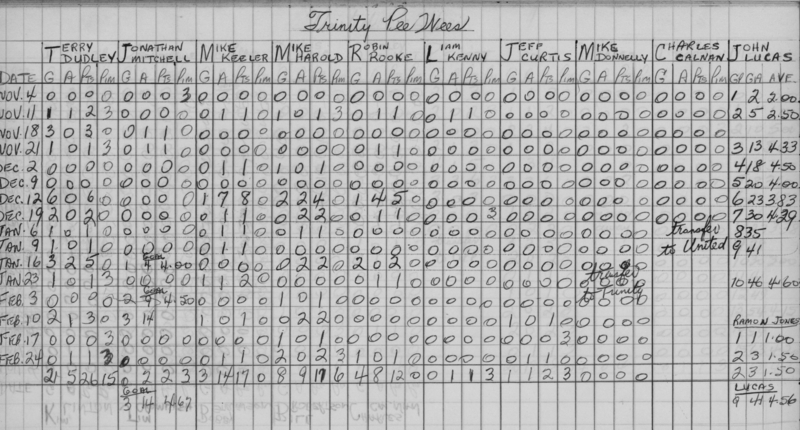 Trinity Pee Wees
TERRY DUDLEY JONATHAN MITCHELL MIKE KEELER MIKE HAROLD ROBIN ROOKE LIAM KENNY JEFF CURTIS MIKE DONNELLY CHARLES CALNAN JOHN LUCAS
DATE G A Pts Pim G A Pts Pim G A Pts Pim G A Pts Pim G A Pts Pim G A Pts Pim G A Pts Pim G A Pts Pim G A Pts Pim GP GA AVE.
NOV. 4 0 0 0 0 0 0 0 3 0 0 0 0 0 0 0 0 0 0 0 0 0 0 0 0 0 0 0 0 0 0 0 0 0 0 0 0 1 2 2.00
NOV. 11 1 1 2 3 0 0 0 0 0 1 1 0 1 0 1 3 0 1 1 0 0 1 1 0 0 0 0 0 0 0 0 0 0 0 0 0 2 5 2.50
NOV. 18 3 0 3 0 0 1 1 0 0 0 0 0 0 0 0 0 0 0 0 0 0 0 0 0 0 0 0 0 0 0 0 0 0 0 0 0
NOV. 21 1 0 1 3 0 1 1 0 0 0 0 0 0 0 0 0 0 1 1 0 0 0 0 0 0 0 0 0 0 0 0 0 0 0 0 0 3 13 4.33
DEC. 2 0 0 0 0 0 0 0 0 0 1 1 0 1 0 1 0 0 0 0 0 0 0 0 0 0 0 0 0 0 0 0 0 0 0 0 0 4 18 4.50
DEC. 9 0 0 0 0 0 0 0 0 0 0 0 0 0 0 0 0 0 0 0 0 0 0 0 0 0 0 0 0 0 0 0 0 0 0 0 0 5 20 4.00
DEC. 12 6 0 6 0 0 0 0 0 1 7 8 0 2 2 4 0 1 4 5 0 0 0 0 0 0 0 0 0 0 0 0 0 0 0 0 0 6 23 3.83
DEC. 19 2 0 2 0 0 0 0 0 0 1 1 0 0 2 2 0 0 1 1 0 0 0 0 3 0 0 0 0 0 0 0 0 0 0 0 0 7 30 4.29
JAN. 6 1 0 1 0 0 0 0 0 0 1 1 0 0 1 1 0 0 0 0 0 0 0 0 0 0 0 0 0 0 0 0 0 Transfer 8 35
JAN. 9 1 0 1 0 0 0 0 0 0 1 1 0 0 0 0 0 0 0 0 0 0 0 0 0 0 0 0 0 0 0 0 0 to United 9 41
JAN. 16 3 2 5 0 Goal 1 4 4.00 0 0 0 0 0 2 2 0 2 0 2 0 0 0 0 0 0 0 0 0 0 0 0 0
JAN 23 1 0 1 3 0 0 0 0 1 1 2 0 0 0 0 0 0 1 1 0 0 0 0 0 0 0 0 0 Transfer 10 46 4.60
FEB. 3 0 0 0 0 Goal 2 9 4.50 0 0 0 0 1 0 1 0 0 0 0 0 0 0 0 0 0 0 0 0 to Trinity
FEB. 10 2 1 3 0 3 14 1 0 1 0 0 2 2 0 0 0 0 0 0 0 0 0 1 0 1 0 0 0 0 0 RAMON JONES
FEB. 17 0 0 0 3 0 0 0 0 0 0 0 0 1 0 1 0 0 0 0 0 0 0 0 0 0 0 0 3 0 0 0 0 1 1 1.00
FEB. 24 0 1 1 3 0 0 0 0 0 1 1 0 2 0 2 3 1 0 1 0 0 0 0 0 0 1 1 0 0 0 0 0 2 3 1.50
21 5 26 15 0 2 2 3 3 14 17 0 8 9 17 6 4 8 12 0 0 1 1 3 1 1 2 3 0 0 0 0 2 3 1.50
Goal LUCAS
3 14 4.67 9 41 4.56